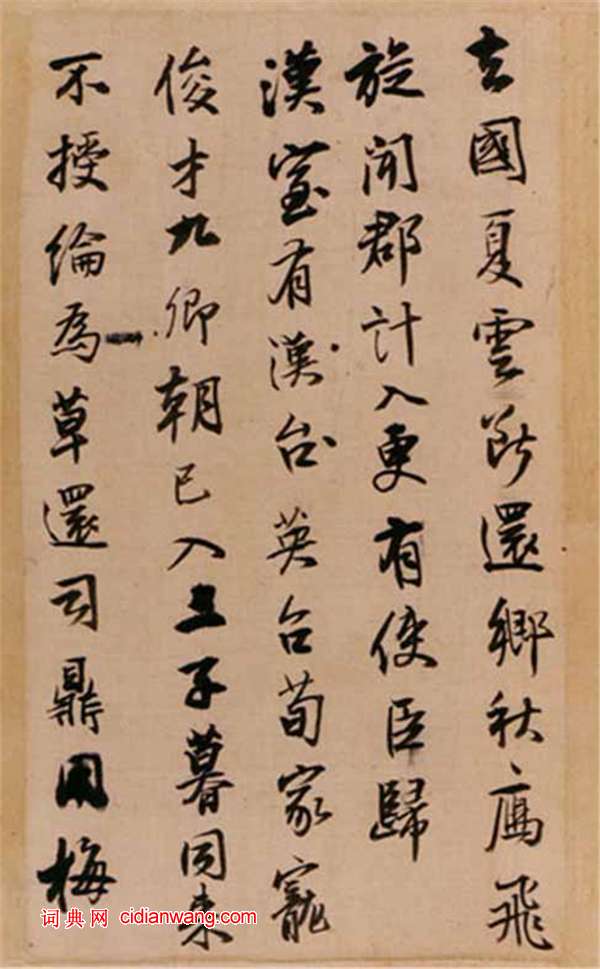 去國夏雲斷還鄉秋鴈飛
旋聞郡計入更有使臣歸
漢室有漢台英台荀家寵
俊才九卿朝已入三子暮同來
不授綸為草還司鼎用梅
词典网 cidianwang.com